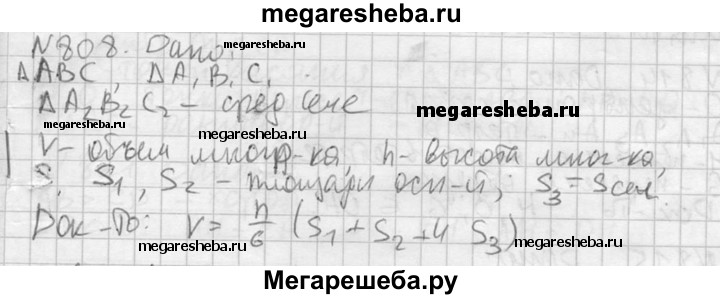 megaresheba.ru
N 808. Дано:
megaresheba.ru
ΔABC, ΔA₁B₁C₁
megaresheba.ru
ΔA₂B₂C₂ – сред сече
megaresheba.ru
megaresheba.ru
V – объем многр-ка, h – высота мног-ка,
S, S₁, S₂ – площади осн-й; S₃ = Sсеч.
megaresheba.ru
Док-ть: V = h/6 (S₁ + S₂ + 4 S₃)
megaresheba.ru
megaresheba.ru
Мегарешеба.ру